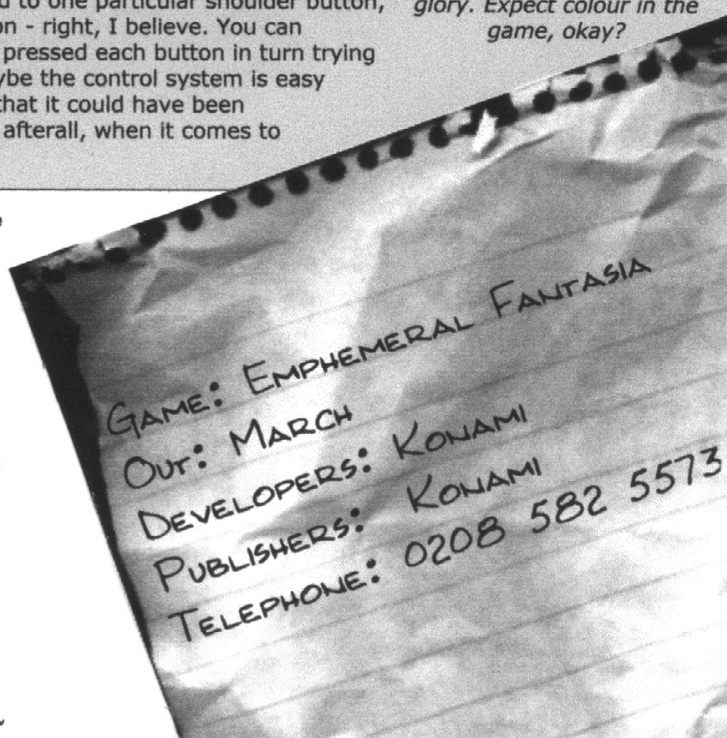 to one particular shoulder button,
on - right, I believe. You can
pressed each button in turn trying
ybe the control system is easy
that it could have been
afterall, when it comes to
glory. Expect colour in the
game, okay?
Game: Emphemeral Fantasia
Out: March
Developers: Konami
Publishers: Konami
Telephone: 0208 582 5573